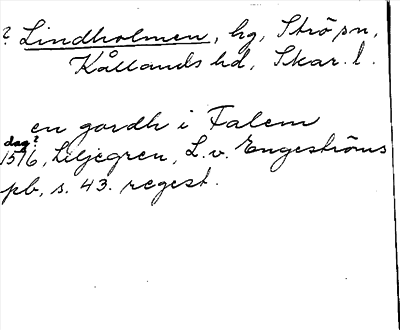 ? Lindholmen, hg, Strö sn,
Kållands hd, Skar. l.
en gardh i Falem
dag?
1516, Liljegren, L. v. Engeströms
pb, s. 43. regest.